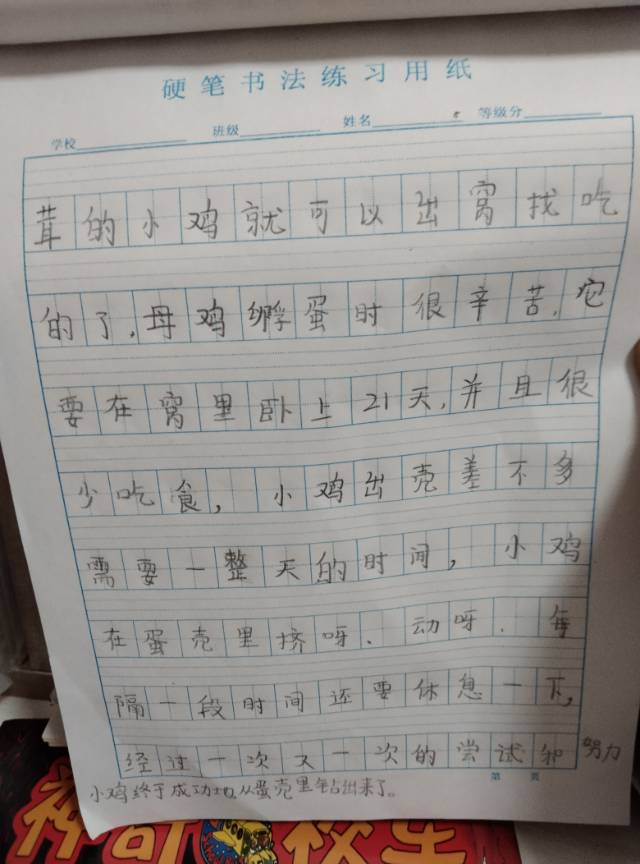 硬笔书法练习用纸
学校 班级 姓名 等级分
茸的小鸡就可以出窝找吃
的了,母鸡孵蛋时很辛苦,它
要在窝里卧上21天,并且很
少吃食,小鸡出壳差不多
需要一整天的时间,小鸡
在蛋壳里挤呀、动呀、每
隔一段时间还要休息一下,
经过一次又一次的尝试和努力
第 页
小鸡终于成功地从蛋壳里钻出来了。
神奇校车